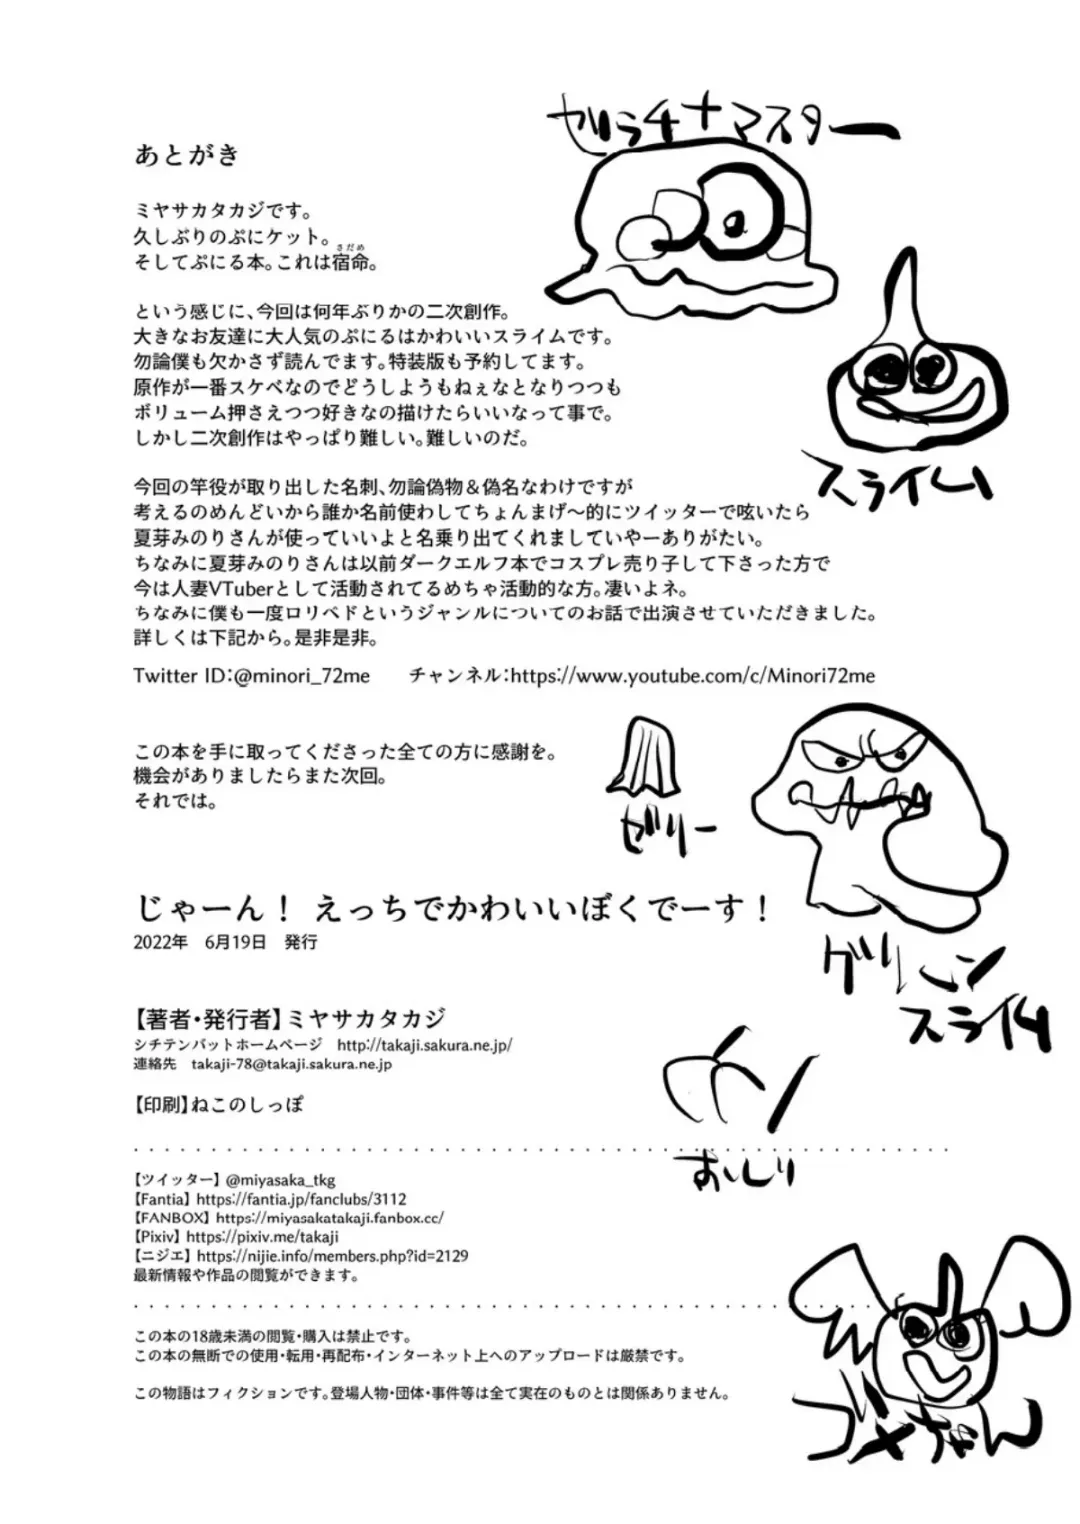 ゼリラチナマスター
あとがき
ミヤサカタカジです。
久しぶりのぷにケット。
さだめ
そしてぷにる本。これは宿命。
という感じに、今回は何年ぶりかの二次創作。
大きなお友達に大人気のぷにるはかわいいスライムです。
勿論僕も欠かさず読んでます。特装版も予約してます。
原作が一番スケベなのでどうしようもねぇなとなりつつも
ボリューム押さえつつ好きなの描けたらいいなって事で。
しかし二次創作はやっぱり難しい。難しいのだ。
スライム
今回の竿役が取り出した名刺、勿論偽物＆偽名なわけですが
考えるのめんどいから誰か名前使わしてちょんまげ〜的にツイッターで呟いたら
夏芽みのりさんが使っていいよと名乗り出てくれましていやーありがたい。
ちなみに夏芽みのりさんは以前ダークエルフ本でコスプレ売り子して下さった方で
今は人妻VTuberとして活動されてるめちゃ活動的な方。凄いよネ。
ちなみに僕も一度ロリベドというジャンルについてのお話で出演させていただきました。
詳しくは下記から。是非是非。
Twitter ID：@minori_72me　　チャンネル：https://www.youtube.com/c/Minori72me
この本を手に取ってくださった全ての方に感謝を。
機会がありましたらまた次回。
それでは。
ゼリー
じゃーん！ えっちでかわいいぼくでーす！
2022年　6月19日　発行
グリーン
スライム
【著者・発行者】ミヤサカタカジ
シチテンバットホームページ　http://takaji.sakura.ne.jp/
連絡先　takaji-78@takaji.sakura.ne.jp
【印刷】ねこのしっぽ
おいしい
【ツイッター】 @miyasaka_tkg
【Fantia】 https://fantia.jp/fanclubs/3112
【FANBOX】 https://miyasakatakaji.fanbox.cc/
【Pixiv】 https://pixiv.me/takaji
【ニジエ】 https://nijie.info/members.php?id=2129
最新情報や作品の閲覧ができます。
この本の18歳未満の閲覧・購入は禁止です。
この本の無断での使用・転用・再配布・インターネット上へのアップロードは厳禁です。
この物語はフィクションです。登場人物・団体・事件等は全て実在のものとは関係ありません。
ゴメちゃん